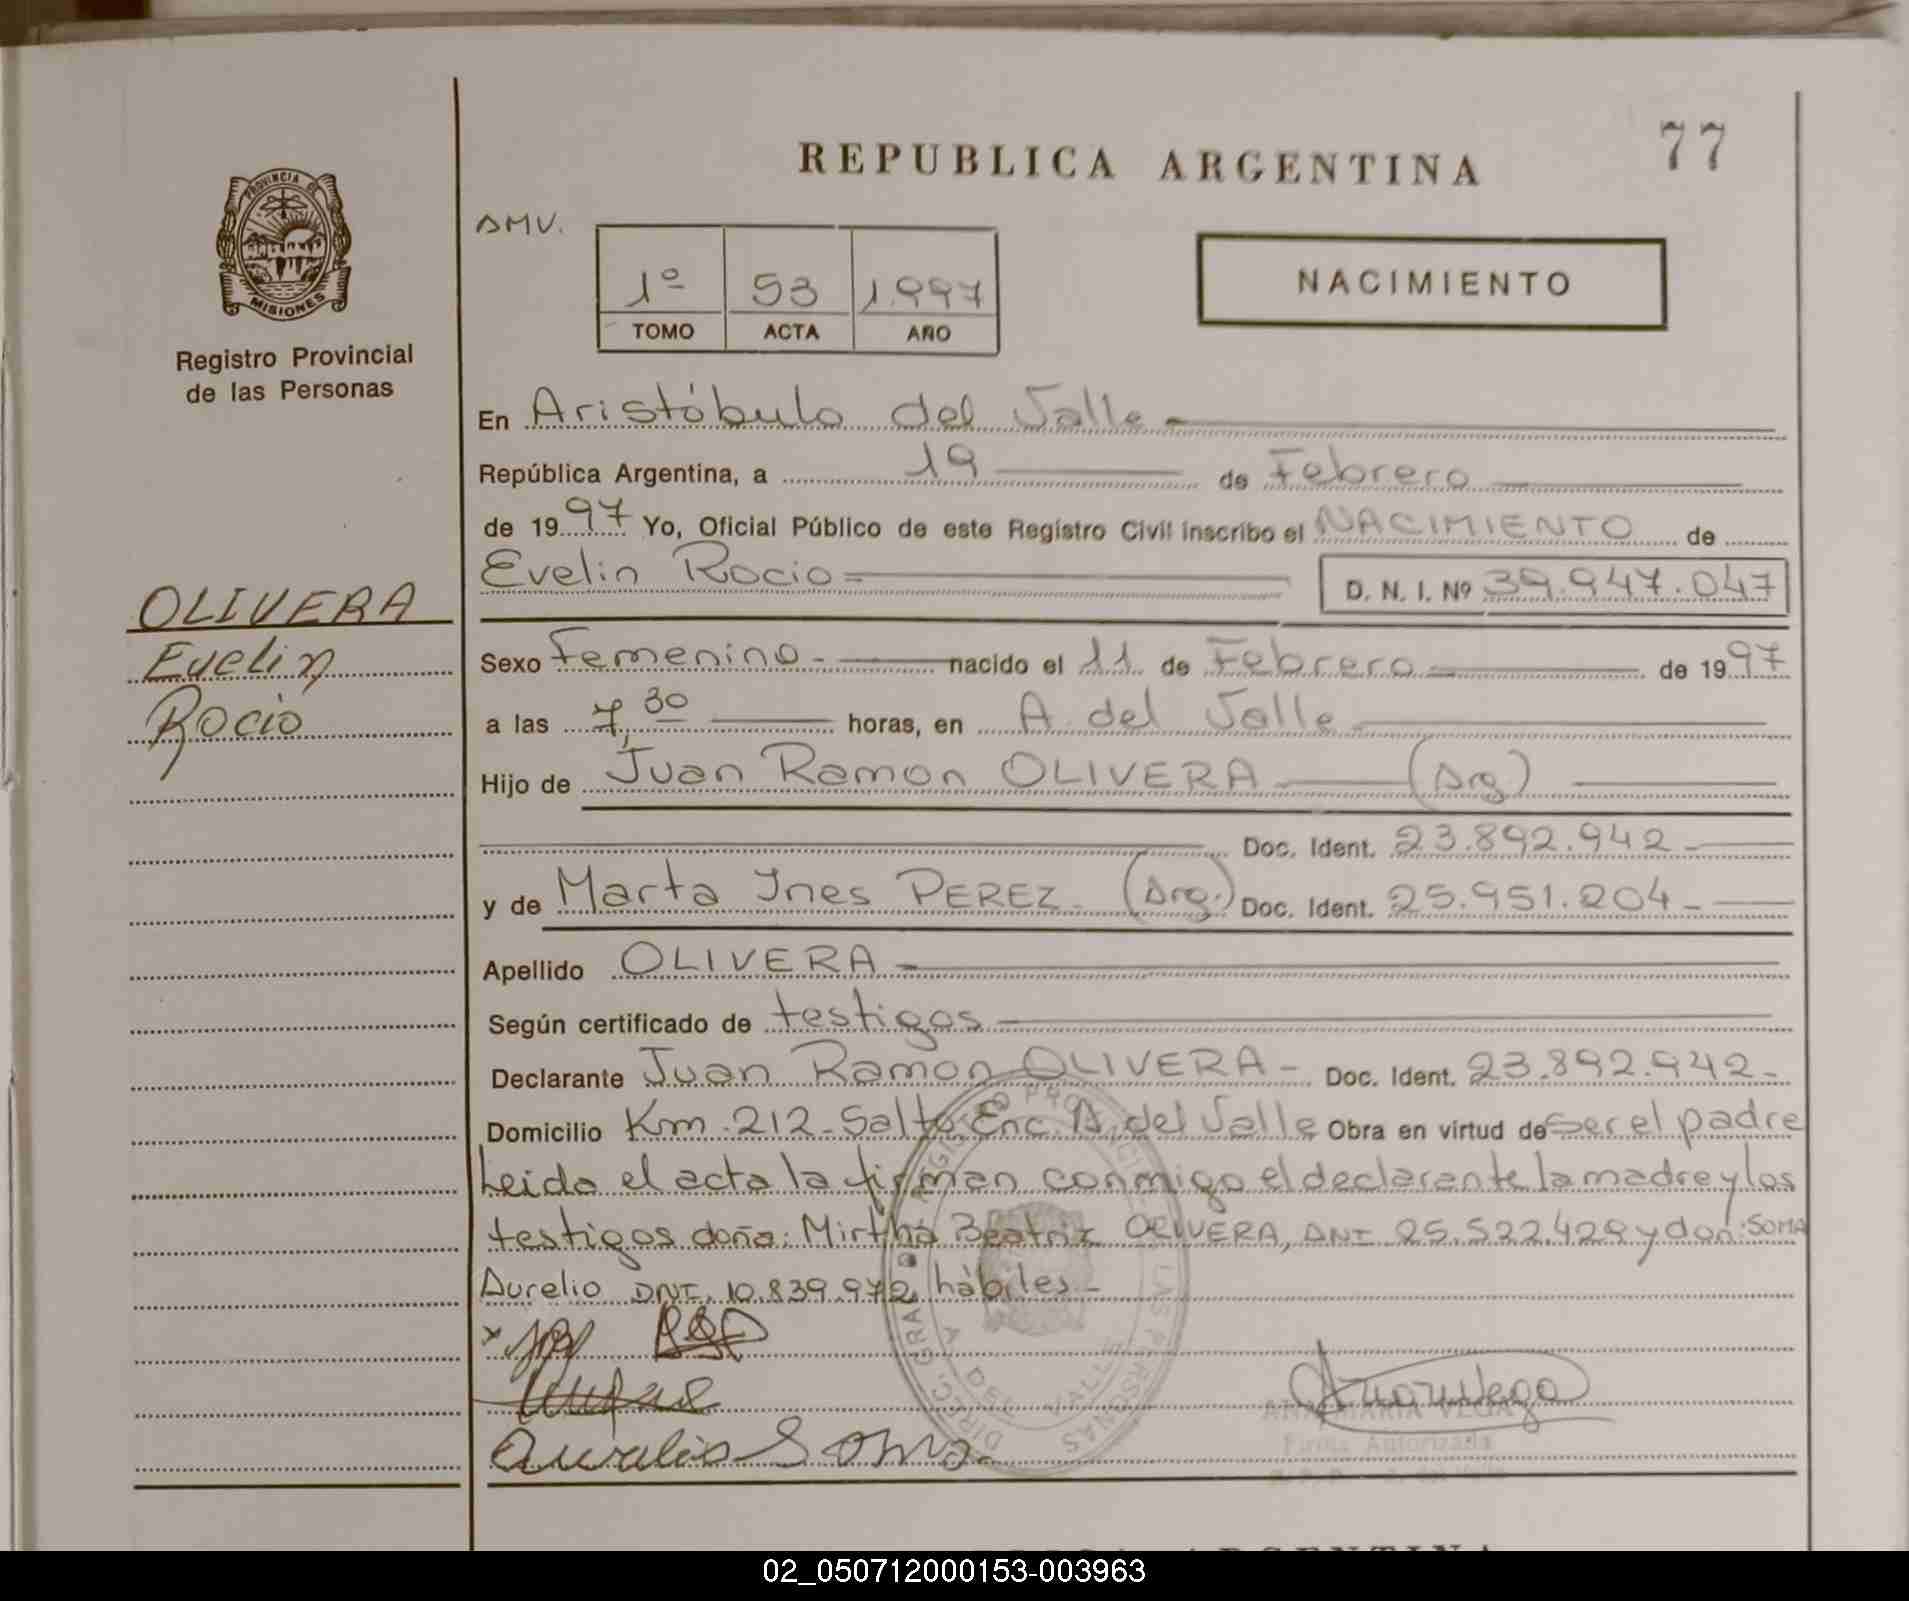 REPUBLICA ARGENTINA
77
PROVINCIA DE
MISIONES
Registro Provincial
de las Personas
AMV.
1º 53 1.997
TOMO ACTA AÑO
NACIMIENTO
En Aristóbulo del Valle
República Argentina, a 19 de Febrero
de 1997 Yo, Oficial Público de este Registro Civil inscribo el NACIMIENTO de
Evelin Rocio
D. N. I. Nº 39.947.047
OLIVERA
Evelin
Rocio
Sexo Femenino.- nacido el 11 de Febrero de 1997
a las 7,30 horas, en A. del Valle
Hijo de Juan Ramon OLIVERA (Arg)
Doc. Ident. 23.892.942.-
y de Marta Ines PEREZ. (Arg.) Doc. Ident. 25.951.204.-
Apellido OLIVERA.-
Según certificado de testigos
Declarante Juan Ramon OLIVERA - Doc. Ident. 23.892.942.-
Domicilio Km. 212- Salto Enc. A. del Valle Obra en virtud de ser el padre
Leida el acta la firman conmigo el declarante la madre y los
testigos doña: Mirtha Beatriz OLIVERA, DNI 25.522.429 y don: SOMA
Aurelio DNI. 10.839.972 hábiles.-
Aurelio Soma.
ANA MARIA VEGA
Firma Autorizada
A DEL VALLE
02_050712000153-003963